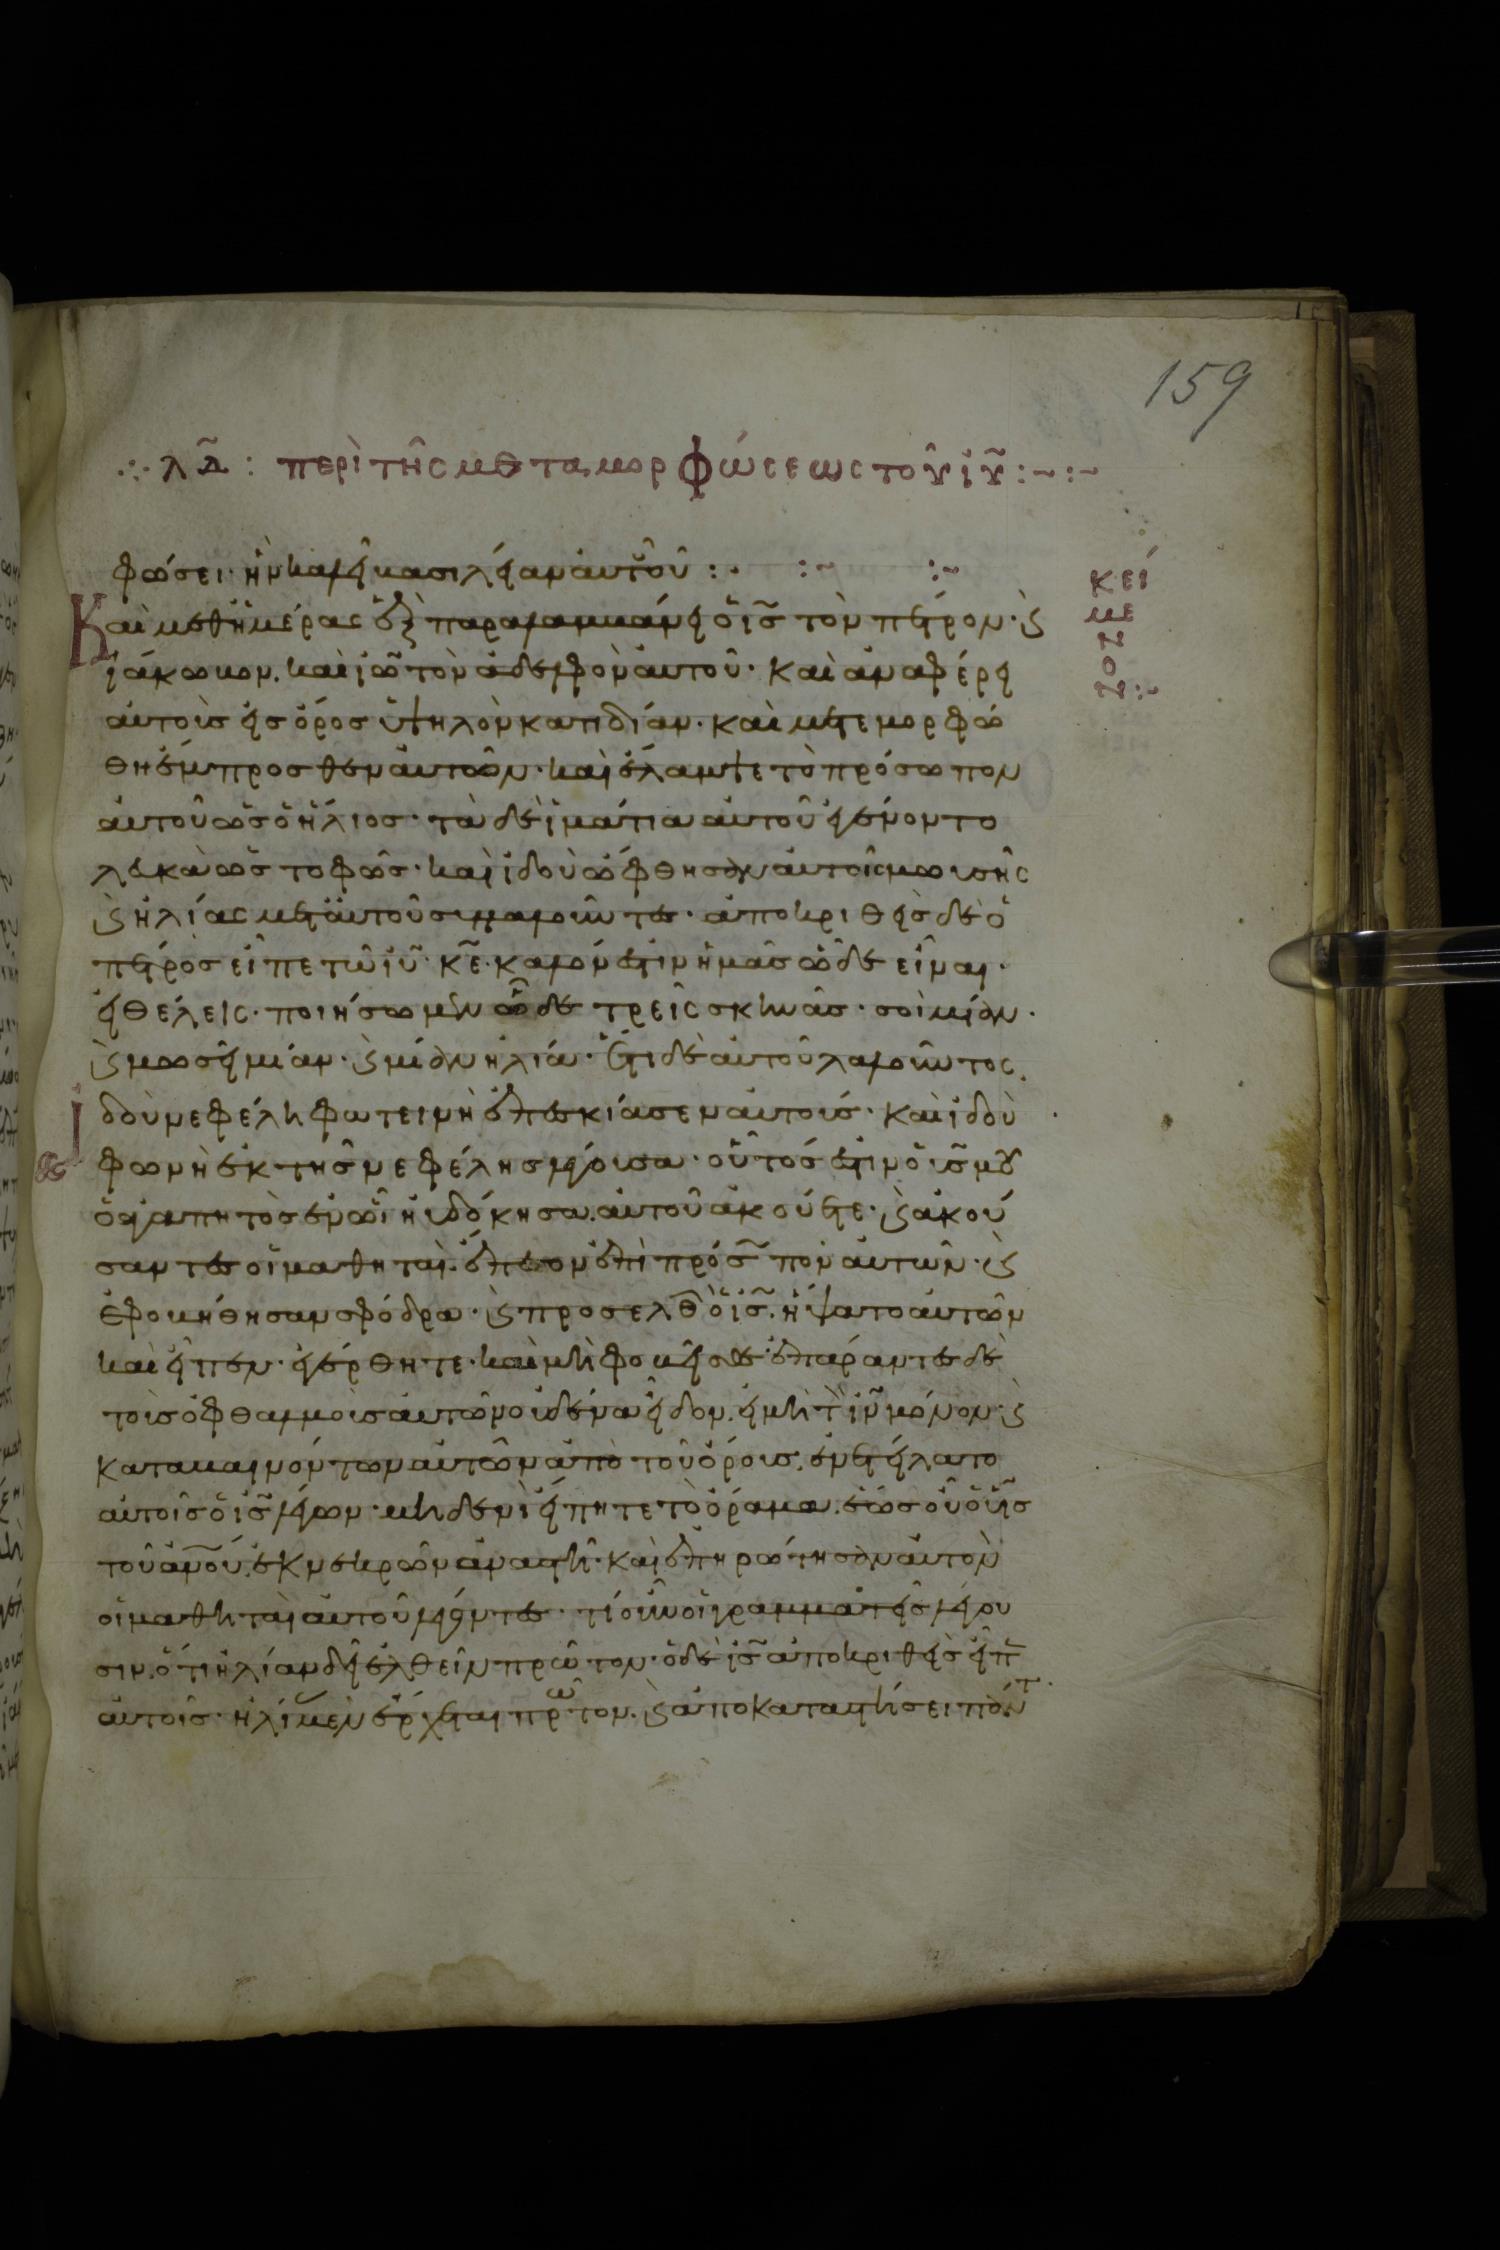 159
∴ λδ̄ : περὶ τῆς μεταμορφώσεως τοῦ ἰῦ :~ :~
φώσει· ἣν καλεῖ βασιλείαν αὐτοῦ : · :~ :~
Καὶ μεθ' ἡμέρας ἓξ παραλαμβάνει ὁ ἰς̄ τὸν πέτρον· ϛ
ἰάκωβον. καὶ ἰω̄ τὸν ἀδελφὸν αὐτοῦ· καὶ ἀναφέρει
αὐτοὺς εἰς ὄρος ὑψηλὸν κατιδίαν· καὶ μετεμορφώ
θη ἔμπροσθεν αὐτῶν· καὶ ἔλαμψε τὸ πρόσωπον
αὐτοῦ ὡς ὁ ἥλιος· τὰ δὲ ἱμάτια αὐτοῦ ἐγένοντο
λευκὰ ὡς τὸ φῶς· καὶ ἰδοὺ ὤφθησαν αὐτοῖς μωυσῆς
ϛ ἠλίας μετ' αὐτοῦ συλλαλοῦντες· ἀποκριθεὶς δὲ ὁ
πέτρος εἶπε τῶ ἰῦ· κε̄· καλόν ἐστιν ἡμᾶς ὧδε εἶναι·
εἰ θέλεις· ποιήσωμεν ὧδε τρεῖς σκηνάς· σοὶ μίαν·
ϛ μωσεῖ μίαν· ϛ μίαν ἠλία· ἔτι δὲ αὐτοῦ λαλοῦντος.
Ἰδοὺ νεφέλη φωτεινὴ ἐπεσκίασεν αὐτούς· καὶ ἰδοὺ
φωνὴ ἐκ τῆς νεφέλης λέγουσα· οὗτός ἐστιν ὁ υἱς̄ μου
ὁ ἀγαπητὸς ἐν ὧ ηὐδόκησα. αὐτοῦ ἀκούετε· ϛ ἀκού
σαντες οἱ μαθηταὶ· ἔπεσον ἐπὶ πρόσ̄πον αὐτῶν· ϛ
ἐφοβήθησαν σφόδρα· ϛ προσελθ ὁ ἰς̄. ἥψατο αὐτῶν
καὶ εἶπεν· ἐγέρθητε· καὶ μὴ φοβεῖσθε· ἐπάραντες δὲ
τοὺς ὀφθαλμοὺς αὐτῶν οὐδένα εἶδον. εἰ μὴ τ ἰν̄ μόνον· ϛ
καταβαινόντων αὐτῶν ἀπὸ τοῦ ὄρους. ἐνετείλατο
αὐτοῖς ὁ ἰς̄ λέγων· μηδενὶ εἴπητε τὸ ὅραμα. ἕως οὗ ὁ υἱς
τοῦ ἀνο̄ύ. ἐκ νεκρῶν ἀναστῆ· καὶ ἐπηρώτησαν αὐτὸν
οἱ μαθηταὶ αὐτοῦ λέγοντες· τί οὖν οἱ γραμματεῖς λέγου
σιν. ὅτι ἠλίαν δεῖ ἐλθεῖν πρῶτον· ὁ δὲ ἰς̄ ἀποκριθεὶς εἶπ
αὐτοῖς· ἠλί μὲν ἔρχεται πρῶτον. ϛ ἀποκαταστήσει πάντ
κεί
με
νον :~